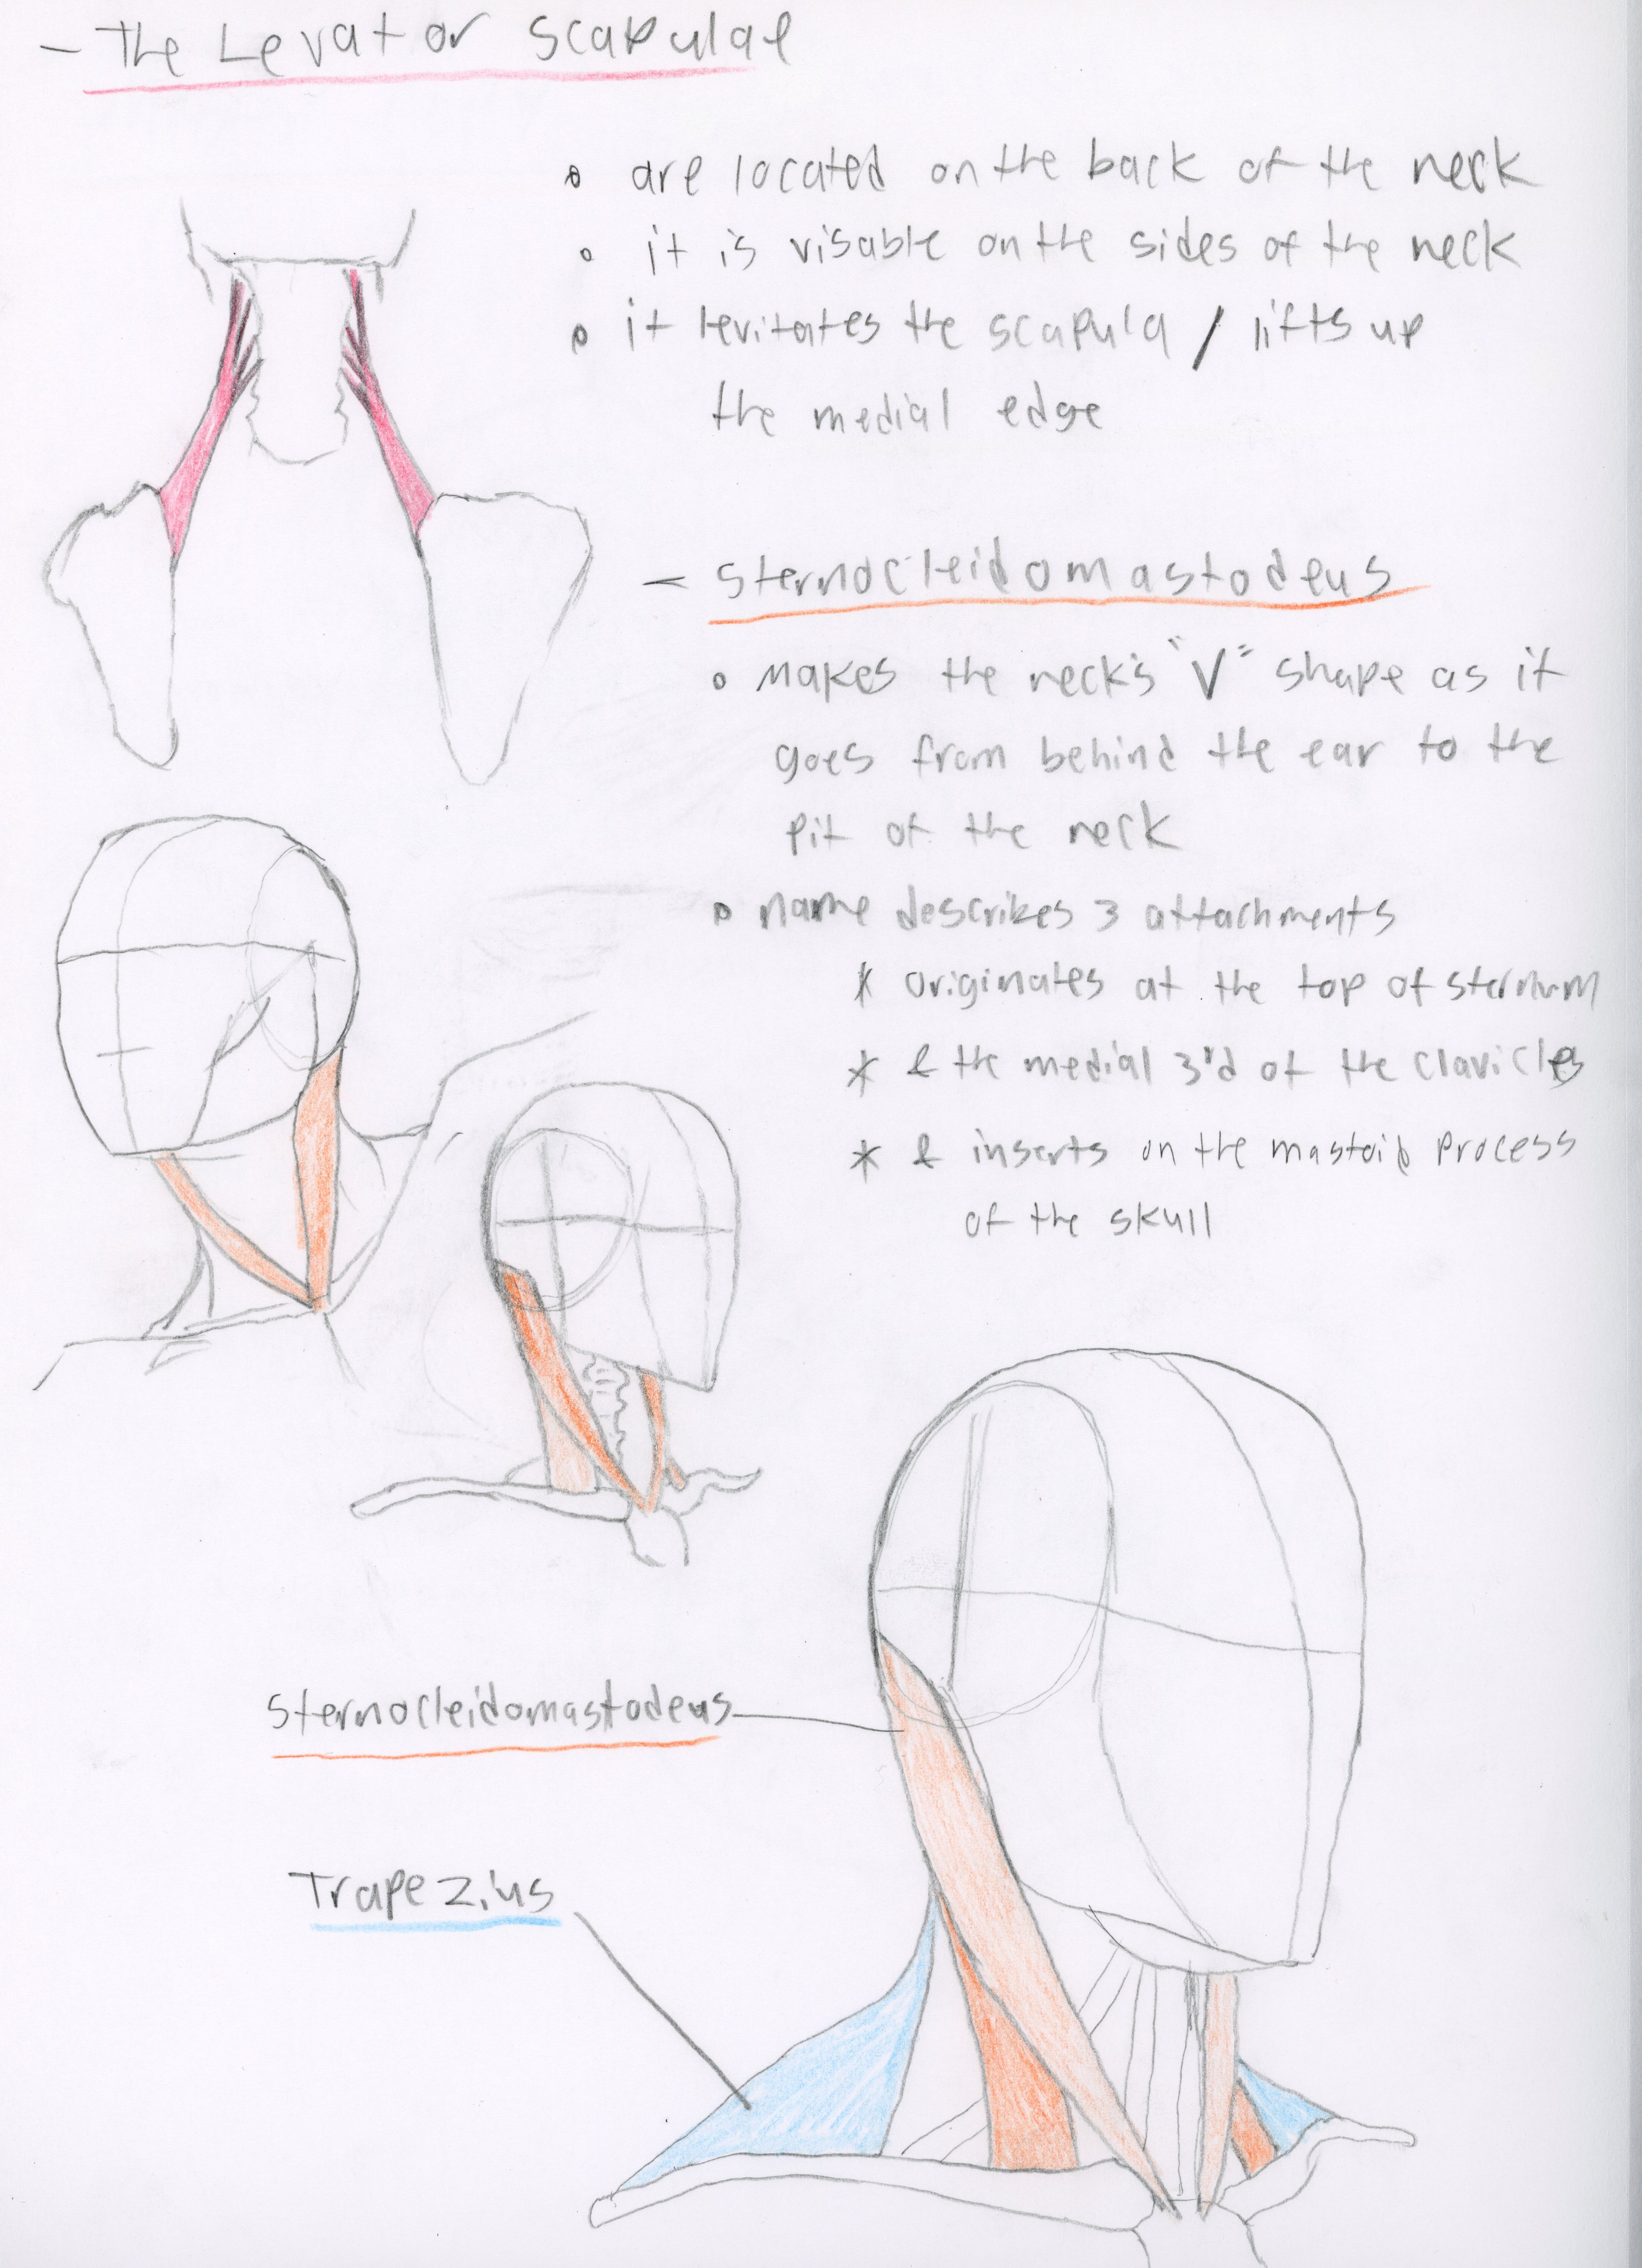 - The Levator scapulae
• are located on the back of the neck
• it is visable on the sides of the neck
• it levitates the scapula / lifts up
the medial edge
- Sternocleidomastodeus
• makes the neck's "V" shape as it
goes from behind the ear to the
pit of the neck
• name describes 3 attachments
* originates at the top of sternum
* & the medial 3rd of the clavicles
* & inserts on the mastoid process
of the skull
Sternocleidomastodeus
Trapezius